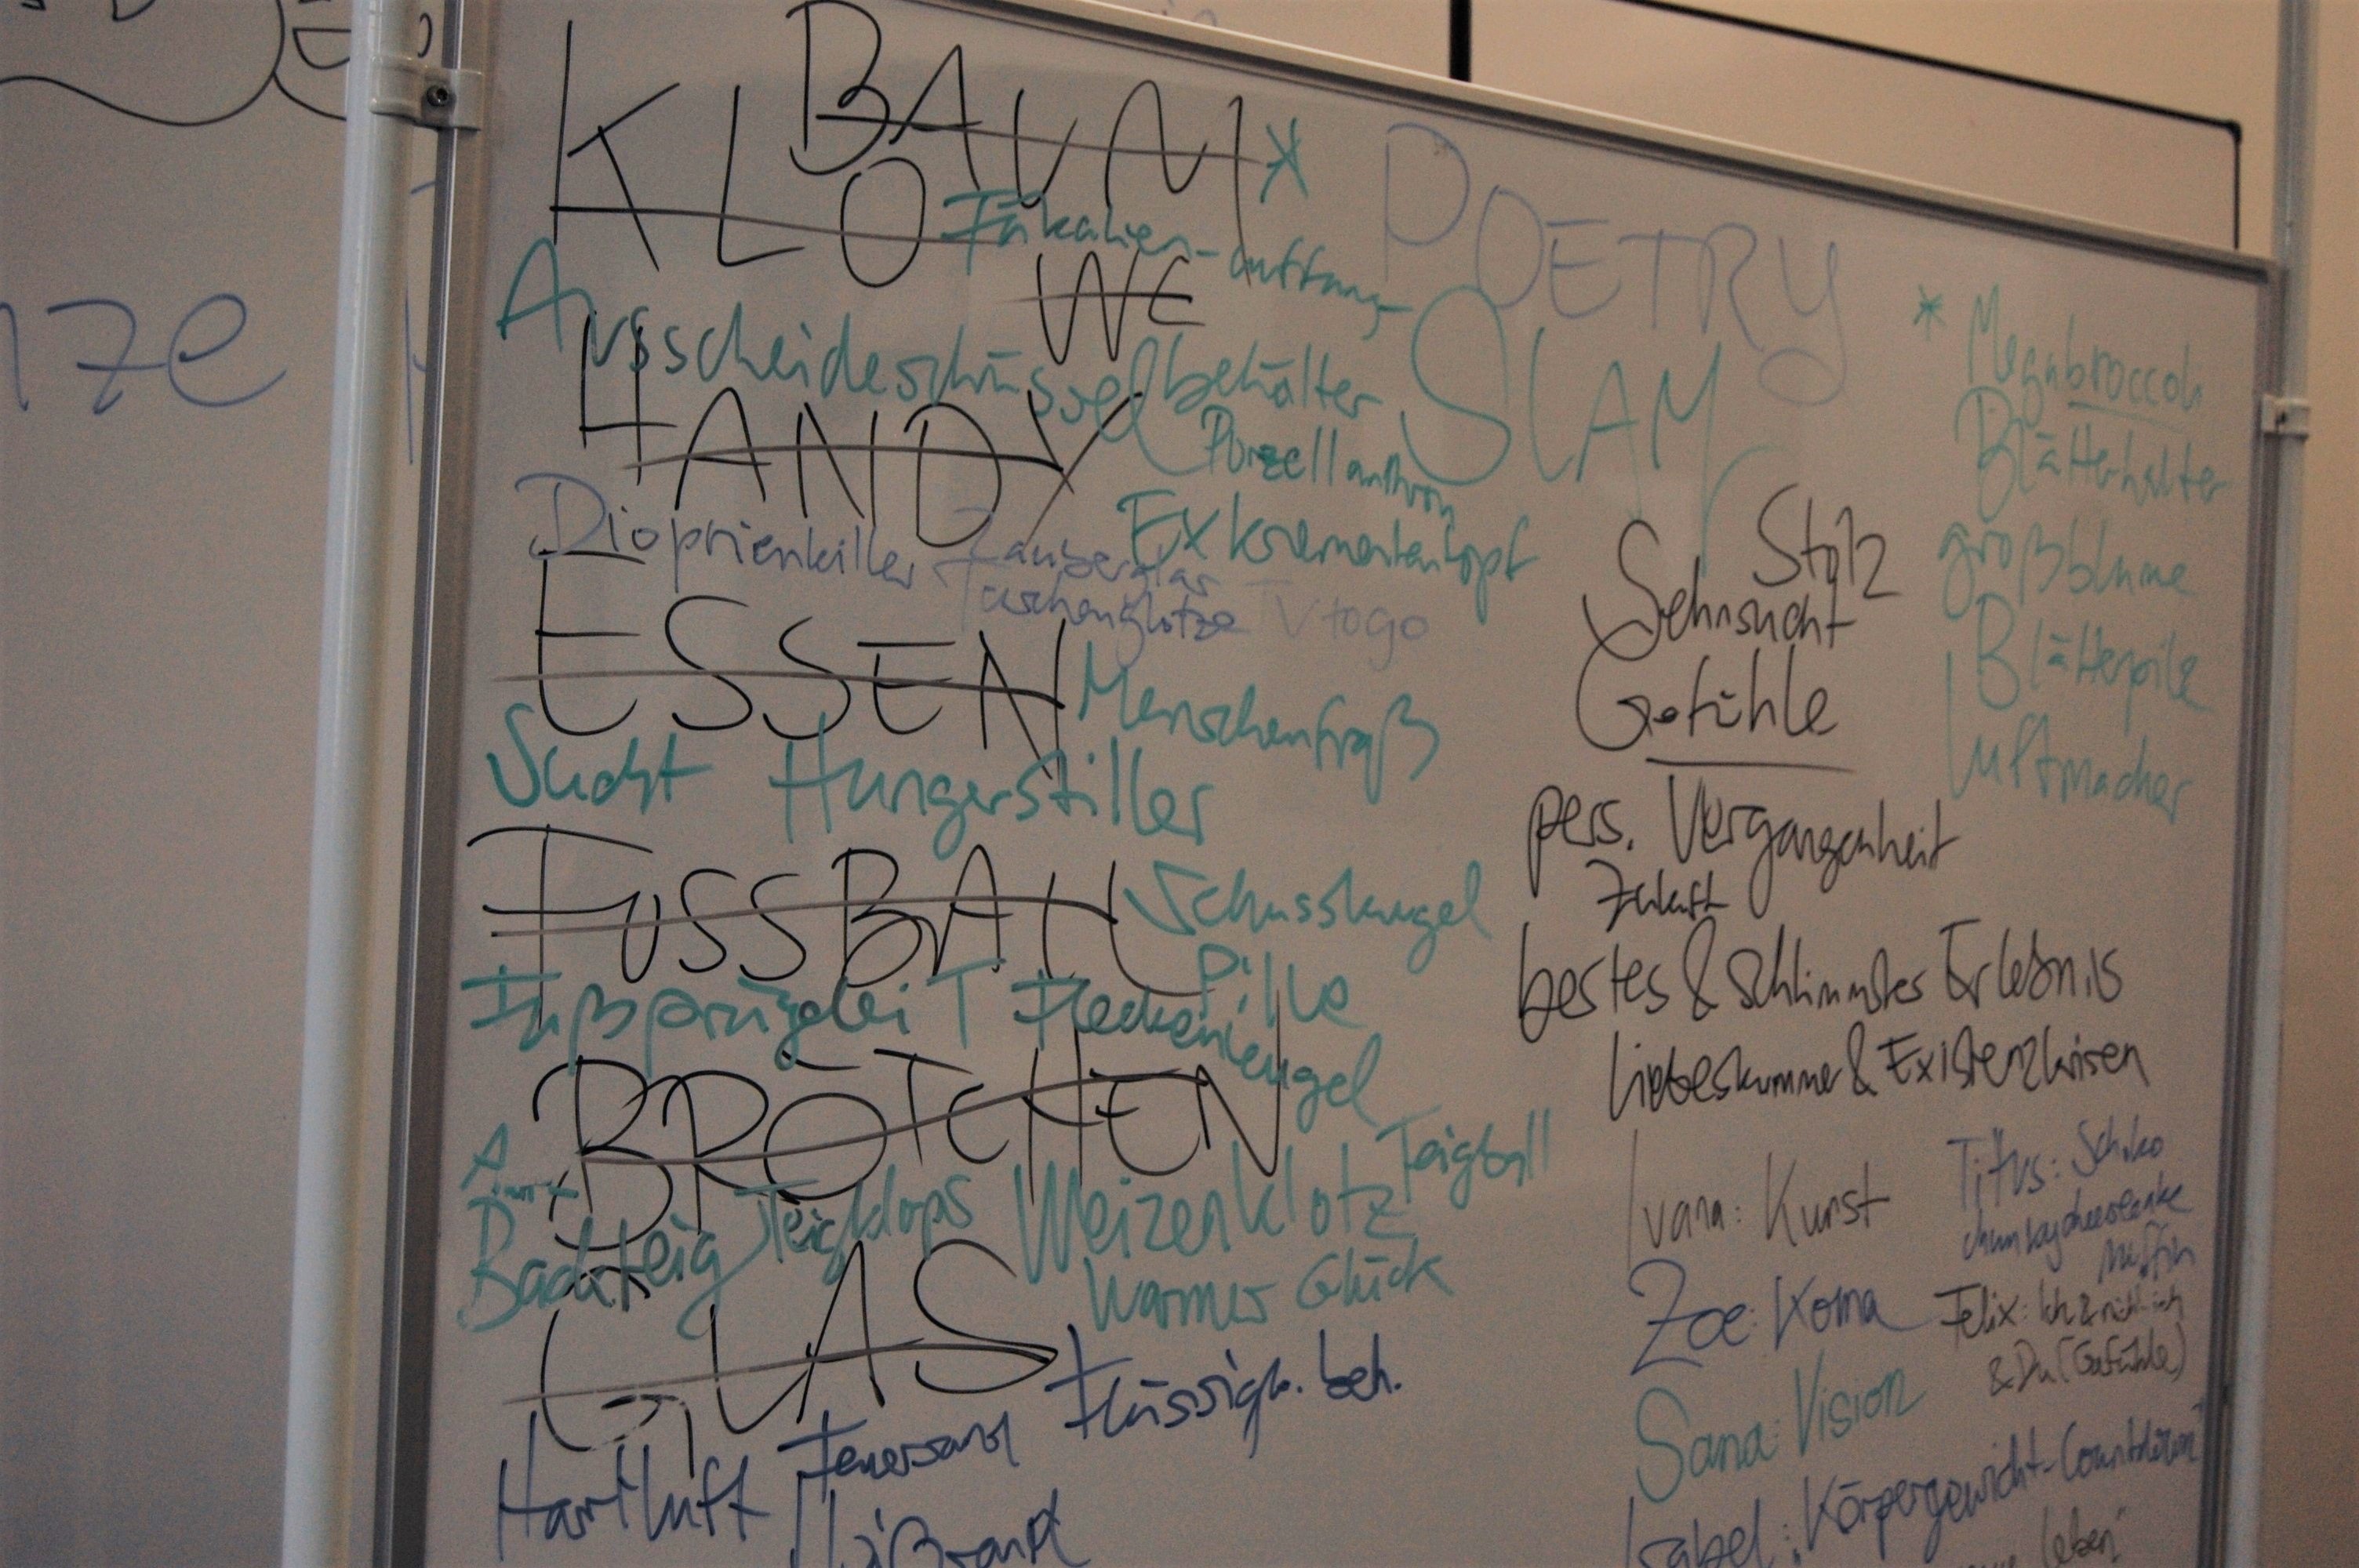 BAUM *
KLO Fäkalien-auffang-
WC
Ausscheideschüsselbehälter
HANDY
Porzellanthron
Exkremententopf
Dioptrienkiller Zauberglas
Taschenglotze TV to go
ESSEN Menschenfraß
Sucht Hungerstiller
FUSSBALL Schusskugel
Pille
Fußprügelei Fleckenkugel
BRÖTCHEN
Teigball
Backteig Teigklops Weizenklotz
warmes Glück
GLAS
Flüssigk. beh.
Hartluft Feuersand
POETRY
SLAM
* Megabroccoli
Blätterhalter
großblume
Blätterpilz
Luftmacher
Stolz
Sehnsucht
Gefühle
pers. Vergangenheit
Zukunft
bestes & schlimmstes Erlebnis
Liebeskummer & Existenzkrisen
Ivana: Kunst
Zoe: Koma
Sana: Vision
Isabel: „Körpergewicht-Countdown"
Titus: Schoko
Muffin
Felix: Ich & nicht-ich
& Du (Gefühle)
leben"
nze